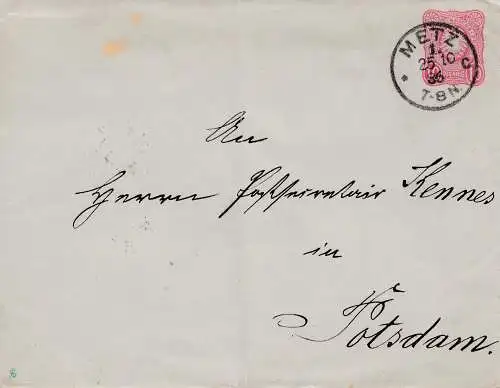 METZ
1.
25 10
C
86
* 7-8 N.
An
Herrn Postsecretair Kennes
in
Potsdam.